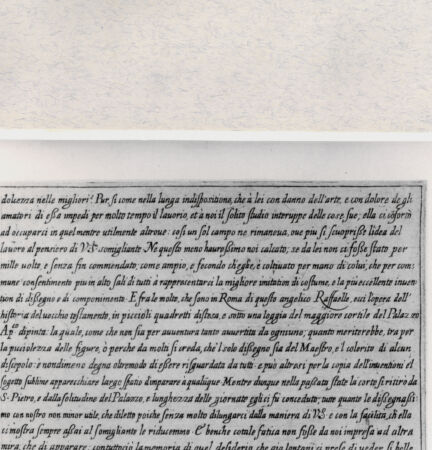 dolcezza nelle migliori. Pur, si come nella lunga indispositione, che à lei con danno dell'arte, e con dolore de gli
amatori di essa impedì per molto tempo il lauorio, et a noi il solito studio interuppe delle cose sue; ella ci confortò
ad occuparci in quel mentre utilmente altroue: così un sol campo ne rimaneua, oue più si scuoprisse l'idea del
lauoro al pensiero di V.S. somigliante. Ne questo meno haurossimo noi calcato, se da lei non ci fosse stato per
mille uolte, e senza fin commendato, come ampio, e fecondo ch'egli è, e coltiuato per mano di colui, che per com
mune consentimento più in alto salì di tutti à rappresentarci la migliore imitation di costume, e la più eccellente inuen
tion di disegno e di componimento. E fra le molte, che sono in Roma di questo angelico Raffaelle, ecci l'opera dell'
historia del uecchio testamento, in piccioli quadretti distesa, e sotto una loggia del maggiore cortile del Palazzo
Ap.º dipinta. la quale, come che non sia per auuentura tanto auuertita da ogniuno; quanto meriterebbe, tra per
la picciolezza delle figure, ò perche da molti si creda, che l solo disegno sia del Maestro, e l colorito di alcun
discipolo: è nondimeno degna oltremodo di essere risguardata da tutti. e può altresì per la copia dell'inuentioni e l
sogetto sublime apparecchiare largo spatio d'imparare a qualunque. Mentre dunque nella passata state la corte si ritirò da
S. Pietro, e dalla solitudine del Palazzo, e lunghezza delle giornate egli ci fù conceduto; tutte quante le disegnassi
mo con nostro non minor utile, che diletto poiche senza molto dilungarci dalla maniera di V.S. e con la facilità, ch ella
ci mostra sempre assai al somigliante le riducemmo. E benche cotale fatica non fosse da noi impresa ad altra
mira, che di apparare; contuttociò la memoria di quel desiderio che già lontani ci prese di ueder sì belle